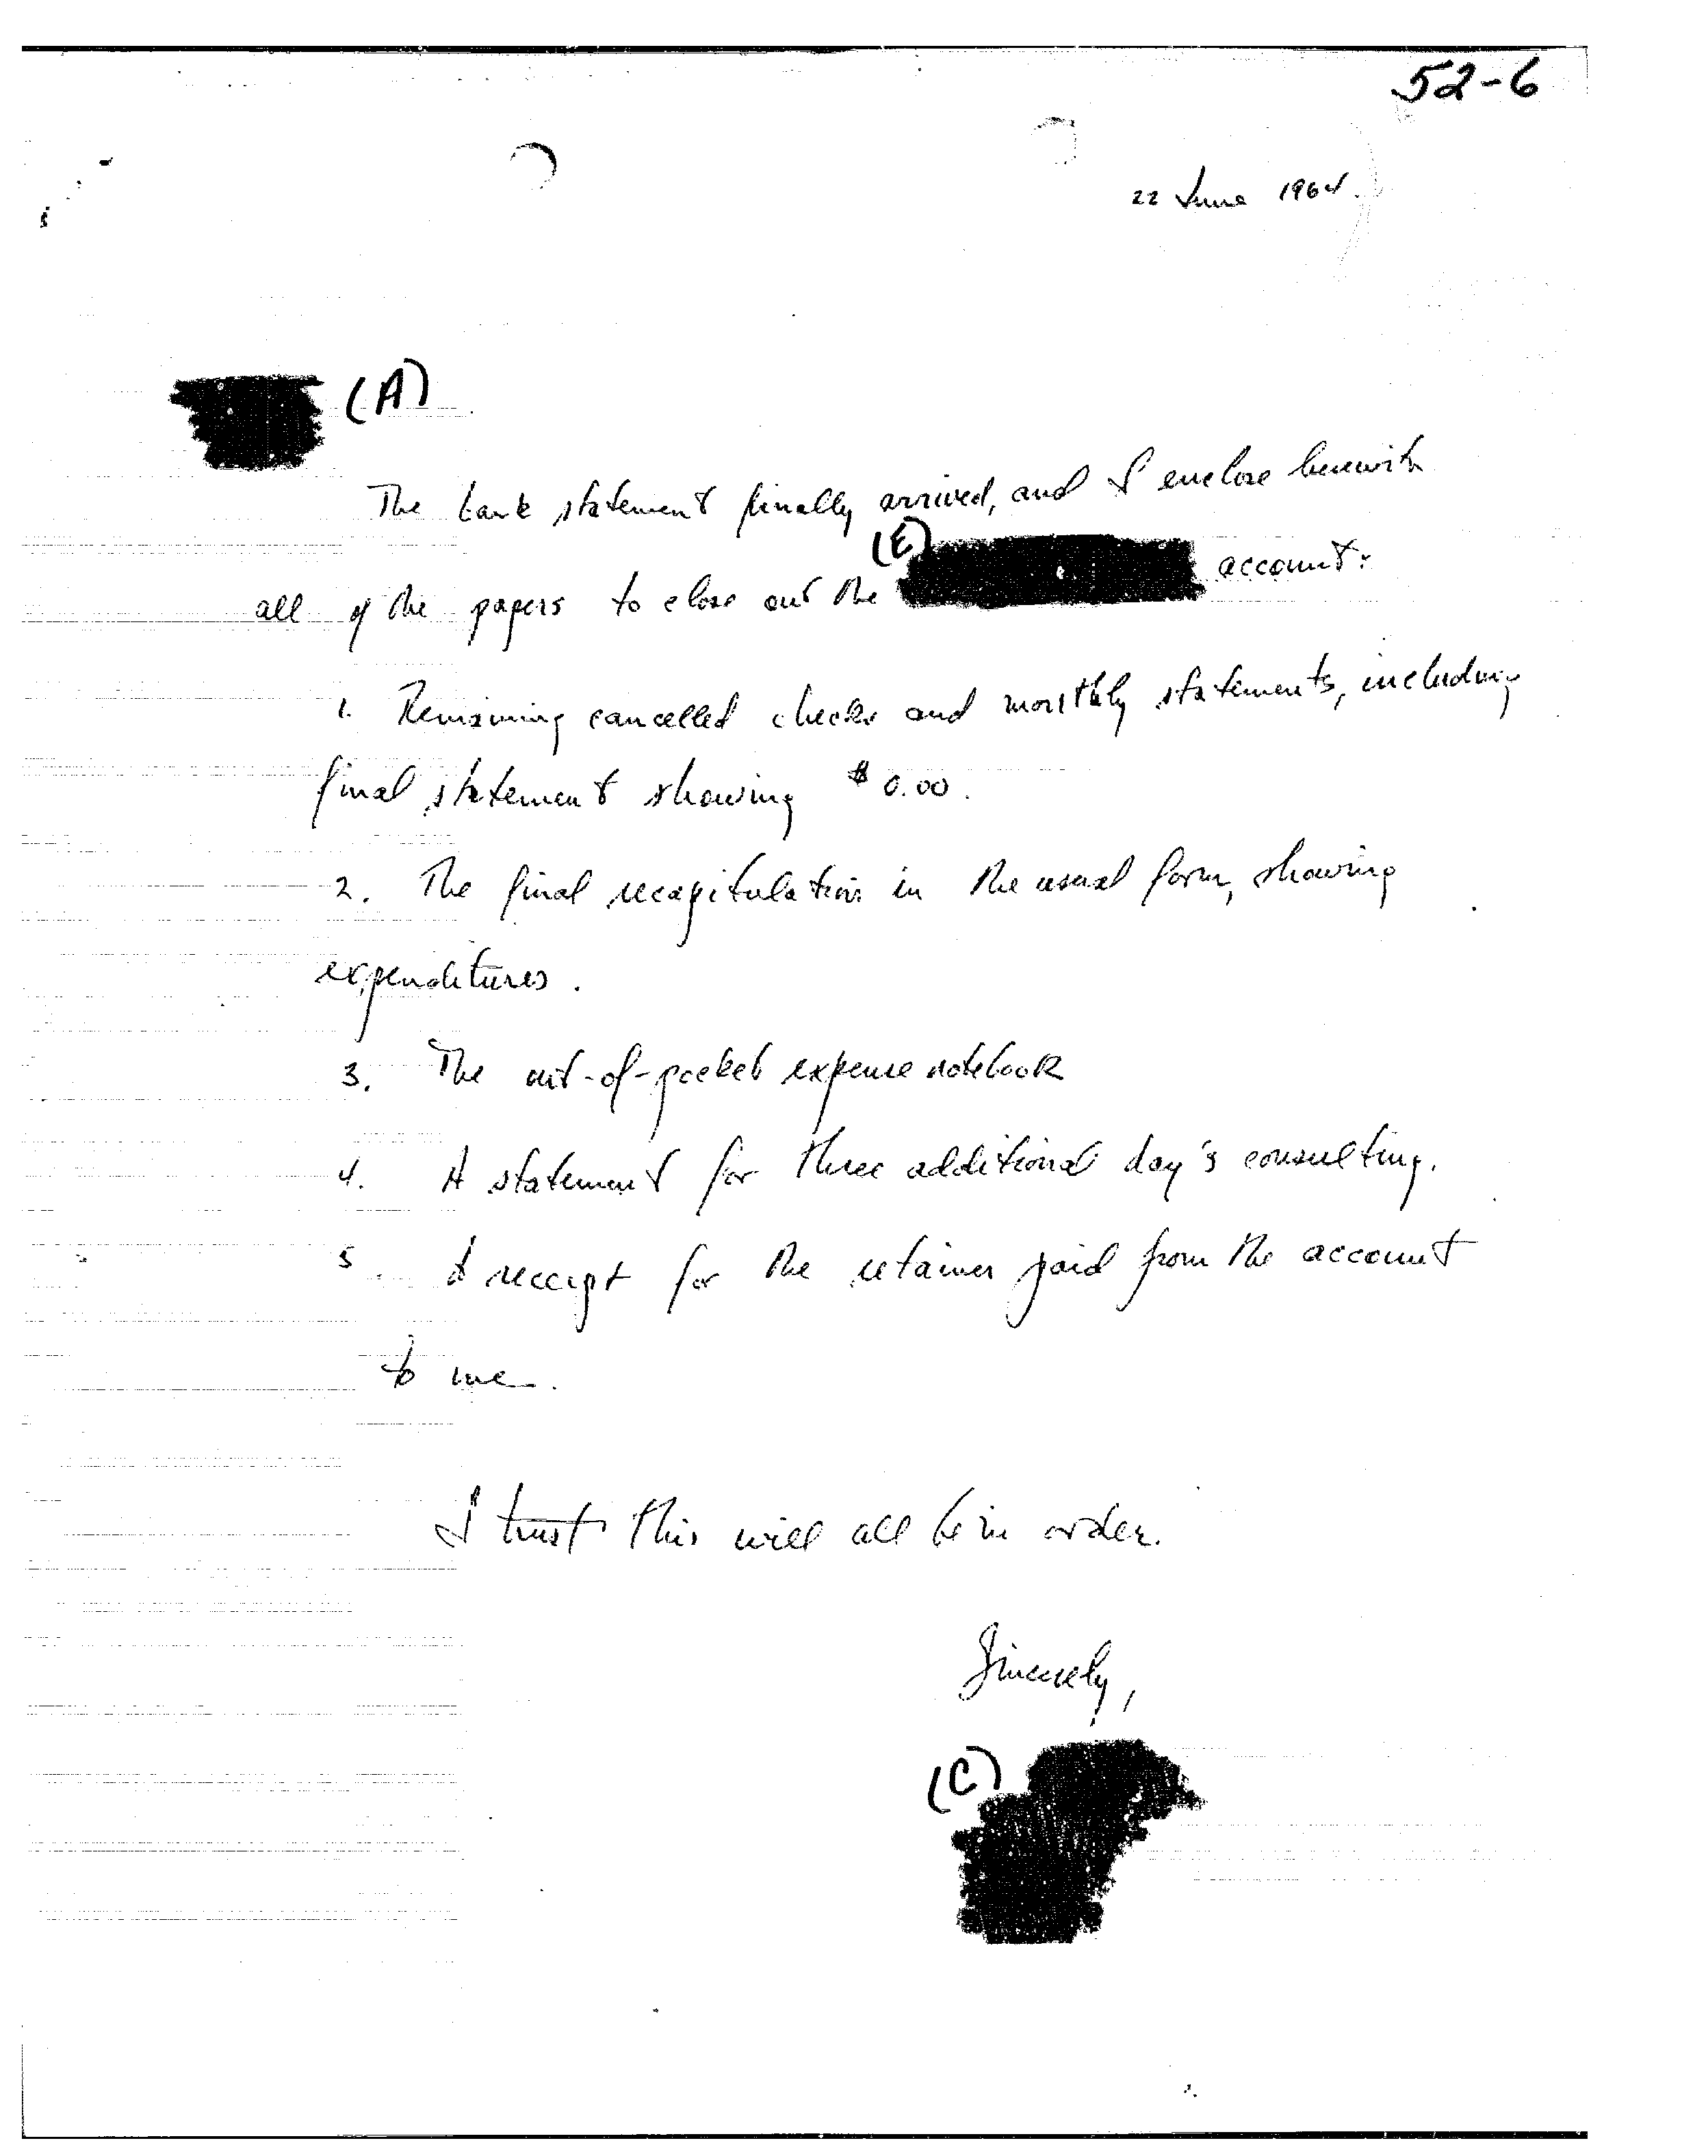 52-6
22 June 1964.
(A)
The bank statement finally arrived, and I enclose herewith
(E)
all of the papers to close out the account:
1. Remaining cancelled checks and monthly statements, including
final statement showing $0.00.
2. The final recapitulation in the usual form, showing
expenditures.
3. The out-of-pocket expense notebook
4. A statement for three additional day's consulting.
5. A receipt for the retainer paid from the account
to me.
I trust this will all be in order.
Sincerely,
(C)